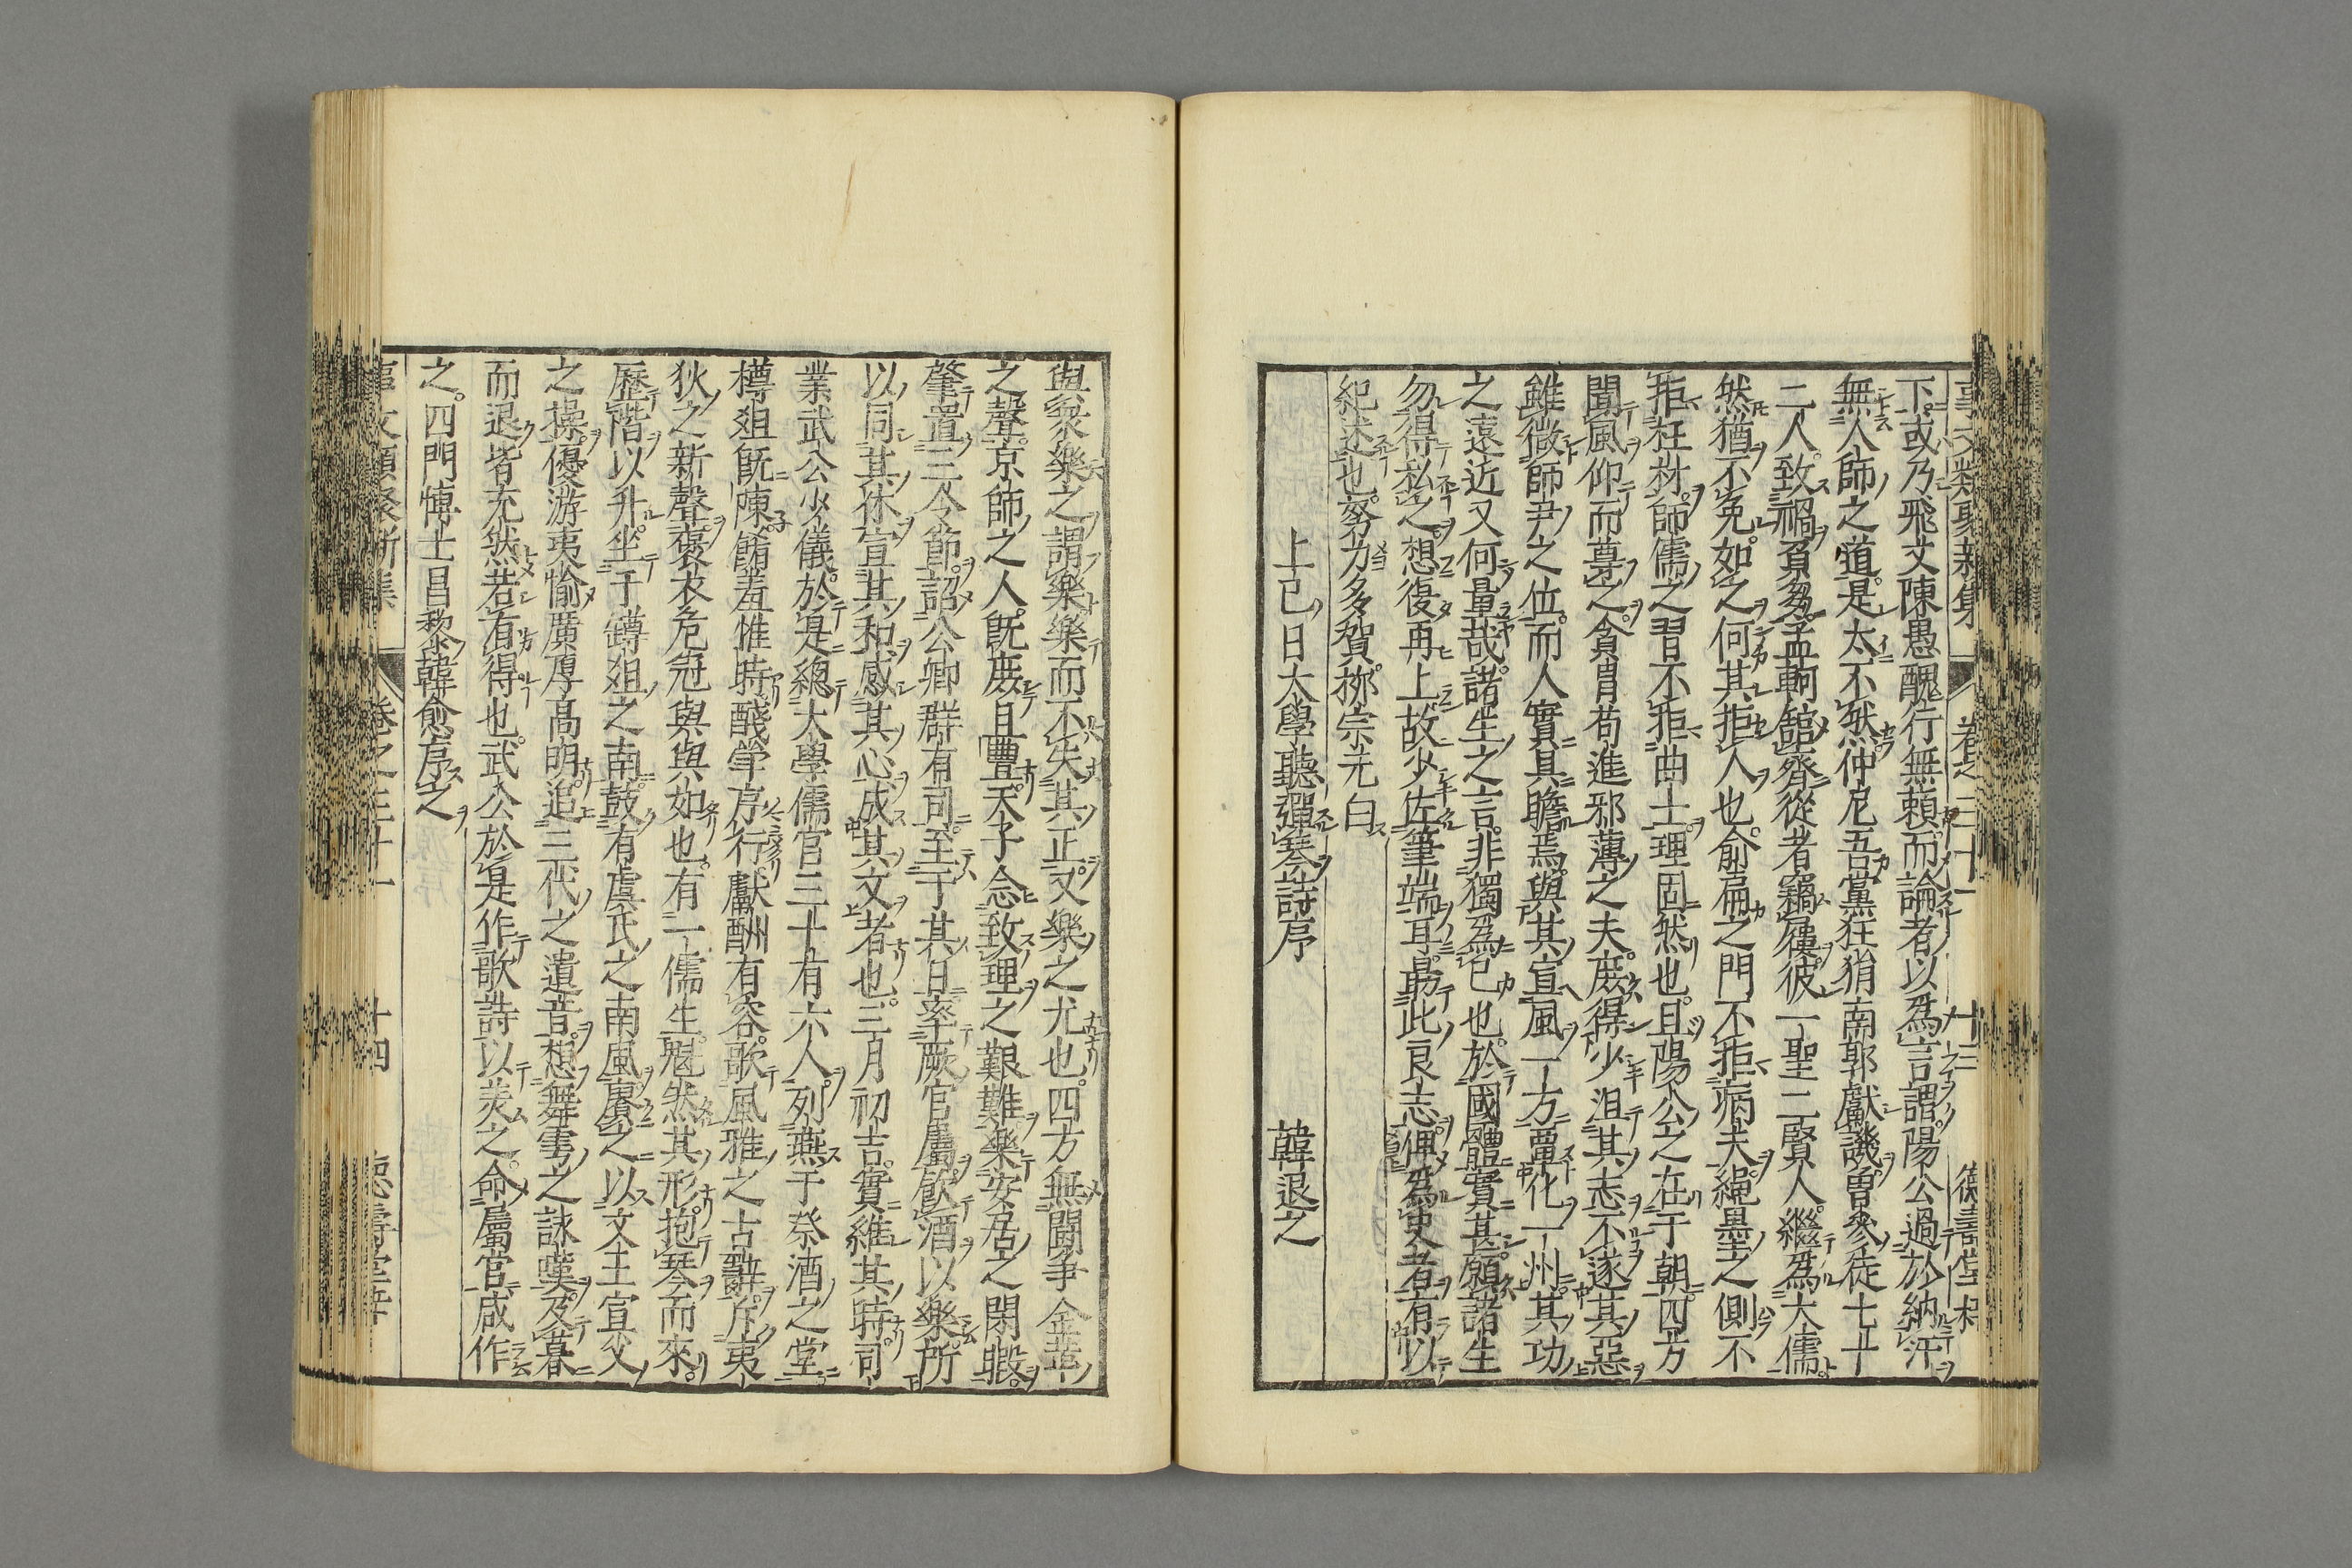 事文類聚新集 卷之三十一 十三 德壽堂梓
下或乃飛文陳愚醜行無頼而論者以爲言謂陽公過於納汙
無人師之道是太不然仲尼吾黨狂狷南郭獻譏曽參徒七十
二人致禍負芻孟軻館齊從者竊屨彼一聖二賢人繼爲大儒
然猶不免如之何其拒人也俞扁之門不拒病夫繩墨之側不
拒枉材師儒之習不拒曲士理固然也且陽公之在于朝四方
聞風仰而尊之貪冒苟進邪薄之夫庻得少沮其志不遂其惡
雖微師尹之位而人實具瞻焉與其宣風一方覃化一州其功
之遠近又何量哉諸生之言非獨爲已也於國體實甚願諸生
勿得私之想復再上故少佐筆端耳勗此良志俾爲史者有以
紀述也努力多賀栁宗元白
上已日大學聽彈琴詩序 韓退之
與衆樂之謂樂樂而不失其正又樂之尤也四方無鬪争金革
之聲京師之人旣庻且豐天子念致理之艱難樂安居之閑暇
肇置三令節詔公卿群有司至于其日率厥官屬飮酒以樂所
以同其休宣其和感其心成其文者也三月初吉實維其時司
業武公少儀於是緫大學儒官三十有六人列燕于祭酒之堂
樽爼旣陳餚羞惟時醆斝序行獻酬有容歌風雅之古辭斥夷
狄之新聲褒衣危冠與與如也有一儒生魁然其形抱琴而來
歷階以升坐于罇爼之南鼓有虞氏之南風賡之以文王宣父
之操優游夷愉廣厚髙明追三代之遺音想舞雩之詠嘆及暮
而退皆充然若有得也武公於是作歌詩以美之命屬官咸作
之四門博士昌黎韓愈序之
事文類聚新集 卷之三十一 十四 德壽堂梓